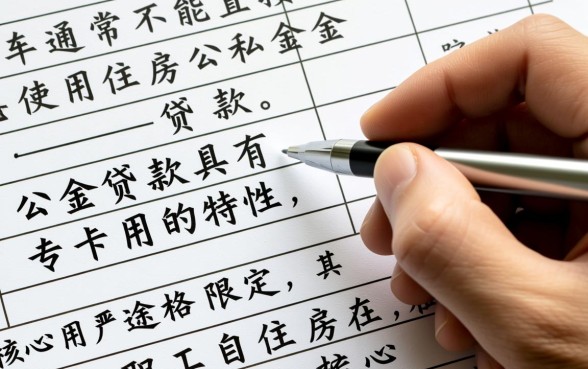 车通常不能直
使用住房公私金金
贷款。
公金贷款具有
专卡用的特性，
核心用严途格限定，其
职工自住房在，
核心